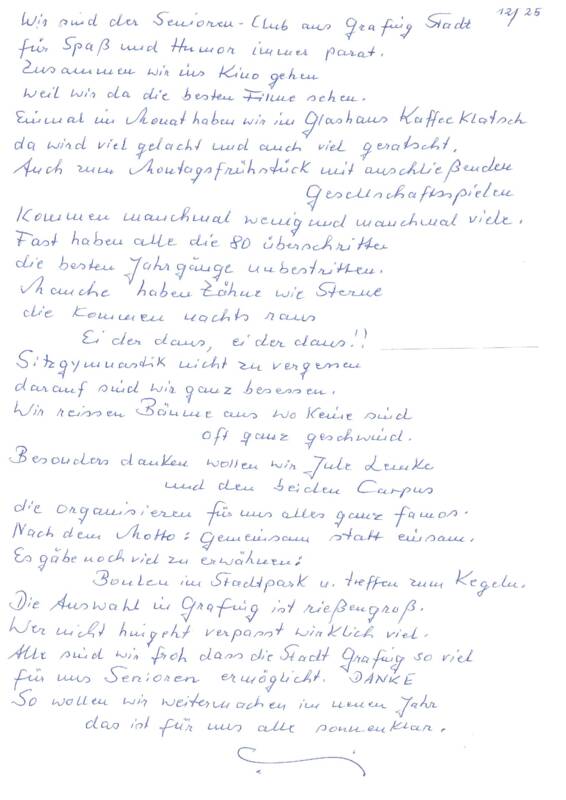 12/25
Wir sind der Senioren-Club aus Grafing Stadt
für Spaß und Humor immer parat.
Zusammen wir ins Kino gehen
weil wir da die besten Filme sehen.
Einmal im Monat haben wir im Glashaus Kaffee Klatsch
da wird viel gelacht und auch viel geratscht.
Auch zum Montagsfrühstück mit anschließenden
Gesellschaftsspielen
Kommen manchmal wenig und manchmal viele.
Fast haben alle die 80 überschritten
die besten Jahrgänge unbestritten.
Manche haben Zähne wie Sterne
die Kommen nachts raus
Ei der daus, ei der daus!!
Sitzgymnastik nicht zu vergessen
darauf sind wir ganz besessen.
Wir reissen Bäume aus wo Keine sind
oft ganz geschwind.
Besonders danken wollen wir Jule Lemke
und den beiden Carpus
die organisieren für uns alles ganz famos.
Nach dem Motto: Gemeinsam statt einsam.
Es gäbe noch viel zu erwähnen:
Boulen im Stadtpark u. treffen zum Kegeln.
Die Auswahl in Grafing ist rießengroß.
Wer nicht hingeht verpasst wirklich viel.
Alle sind wir froh dass die Stadt Grafing so viel
für uns Senioren ermöglicht. DANKE
So wollen wir weitermachen im neuen Jahr
das ist für uns alle sonnenklar.